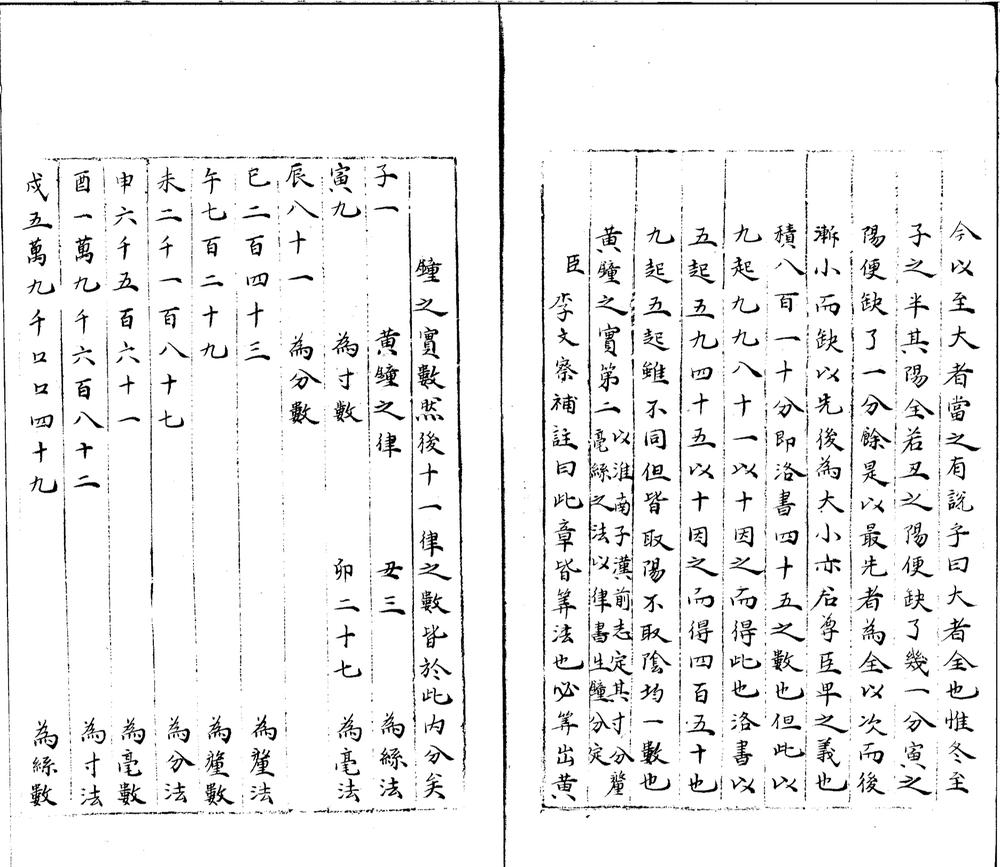 今以至大者當之有說乎曰大者全也惟冬至
子之半其陽全若丑之陽便缺了幾一分寅之
陽便缺了一分餘是以最先者為全以次而後
漸小而缺以先後為大小亦君尊臣卑之義也
積八百一十分即洛書四十五之數也但此以
九起九九八十一以十因之而得此也洛書以
五起五九四十五以十因之而得四百五十也
九起五起雖不同但皆取陽不取陰均一數也
黃鐘之實第二以淮南子漢前志定其寸分釐
毫絲之法以律書生鐘分定
臣李文察補註曰此章皆筭法也必筭出黃
鐘之實數然後十一律之數皆於此內分矣
子一 黃鐘之律 丑三 為絲法
寅九 為寸數 卯二十七 為毫法
辰八十一 為分數
巳二百四十三 為釐法
午七百二十九 為釐數
未二千一百八十七 為分法
申六千五百六十一 為毫數
酉一萬九千六百八十二 為寸法
戌五萬九千口口四十九 為絲數